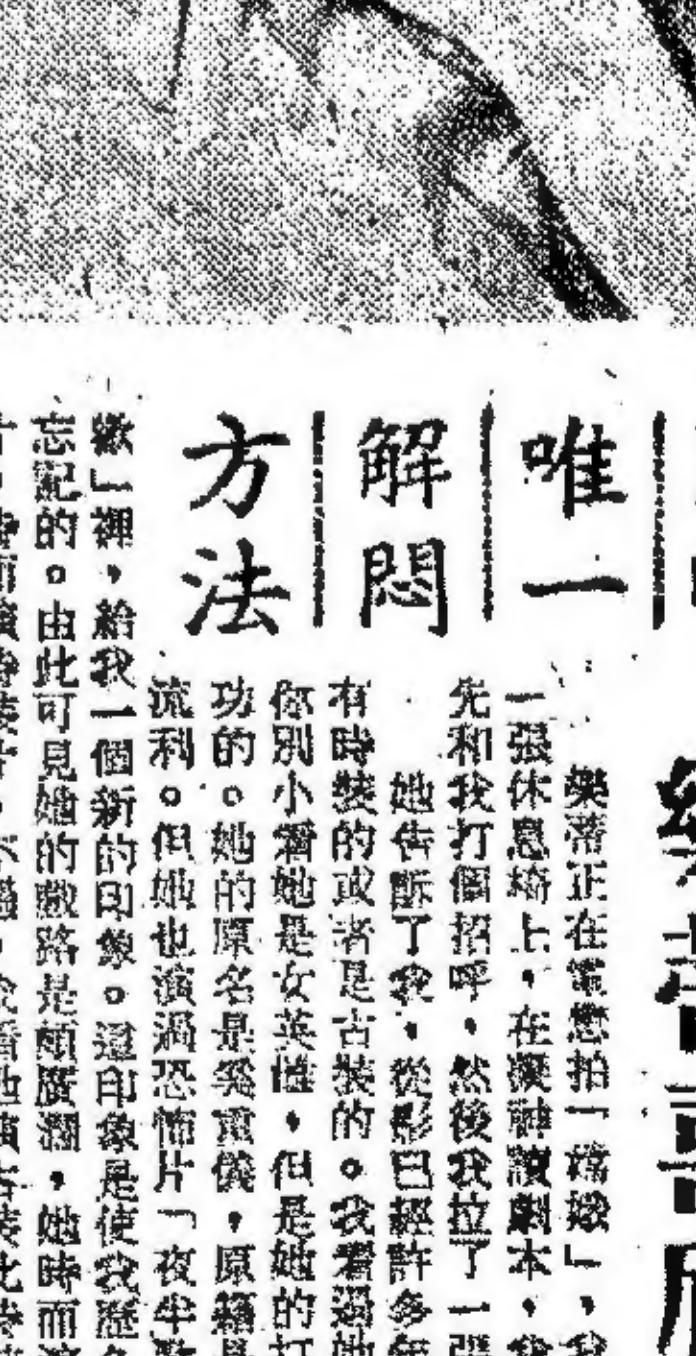 唯一
解悶
方法
樂蒂正在電懋拍「嫦娥」，我
一張休息椅上，在凝神讀劇本，我
先和我打個招呼，然後我拉了一張
她告訴了我，從影已經許多年
有時裝的或者是古裝的。我看過她
你別小看她是女英雄，但是她的打
功的。她的原名是奚重儀，原籍是
流利。但她也演過恐怖片「夜半歌
歌」裡，給我一個新的印象。這印象是使我歷久
忘記的。由此可見她的戲路是頗廣濶，她時而演